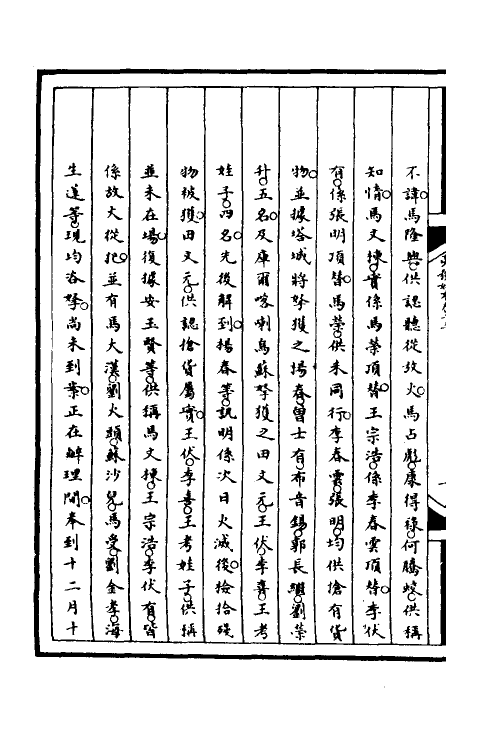 不諱馬隆興供認聽從放火馬占彪康得祿何騰蛟供稱
知情馬文棟實係馬榮頂替王宗浩係李春雲頂替李伏
有係張明頂替馬榮供未同行李春雲張明均供搶有貨
物並據塔城將拏獲之楊春曾士有布音錫郭長繼劉榮
升五名及庫爾喀喇烏蘇拏獲之田文元王伏李喜王考
娃子四名先後解到楊春等訊明係次日火滅後檢拾殘
物被獲田文元供認搶貨屬實王伏李喜王考娃子供稱
並未在場復據安玉賢等供稱馬文棟王宗浩李伏有皆
係放火從犯並有馬大漢劉火頭蘇沙兒馬受劉金孝海
生蓮等現均洛拏尚未到案正在辦理間奉到十二月十